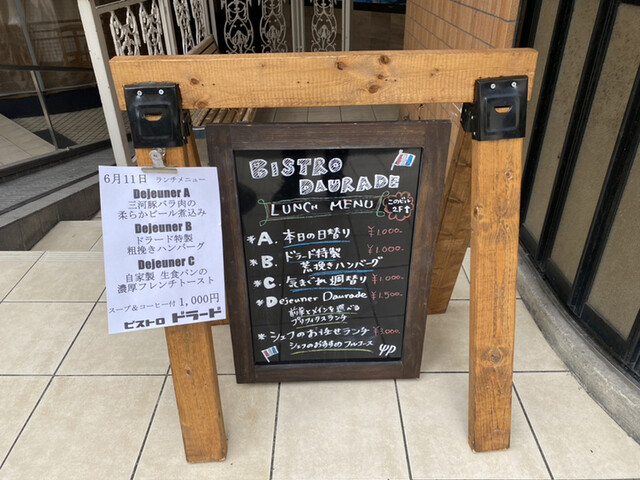 6月11日 ランチメニュー
Dejeuner A
三河豚バラ肉の
柔らかビール煮込み
Dejeuner B
ドラード特製
粗挽きハンバーグ
Dejeuner C
自家製 生食パンの
濃厚フレンチトースト
スープ&コーヒー付 1,000円
ビストロ ドラード
BISTRO
DAURADE
LUNCH MENU
このビル
2F⇧
*A. 本日の日替り ¥1,000.
*B. ドラード特製
荒挽きハンバーグ ¥1,000.
*C. 気まぐれ週替り ¥1,000.
*Dejeuner Daurade ¥1,500.
前菜とメインを選べる
プリフィクスランチ
*シェフのお任せランチ
シェフのおすすめフルコース